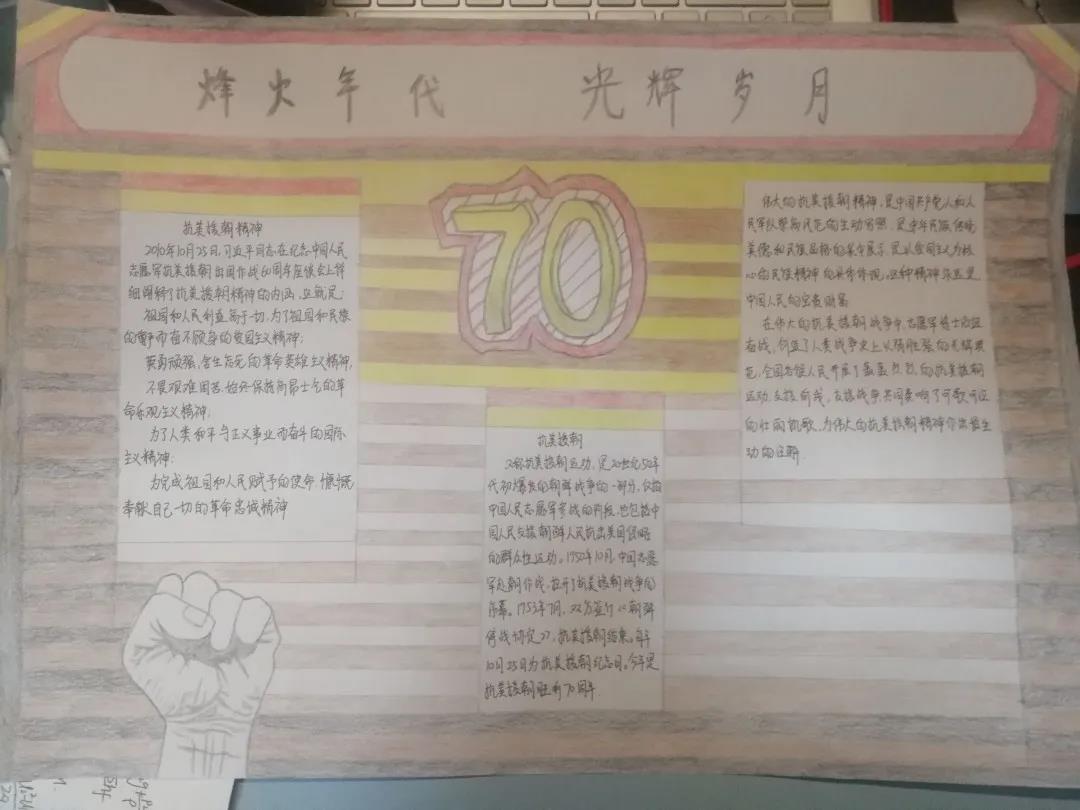 烽火年代 光辉岁月
70
抗美援朝精神
2010年10月25日,习近平同志在纪念中国人民
志愿军抗美援朝出国作战60周年座谈会上详
细阐释了抗美援朝精神的内涵,这就是:
祖国和人民利益高于一切,为了祖国和民族
的尊严而奋不顾身的爱国主义精神;
英勇顽强,舍生忘死的革命英雄主义精神,
不畏艰难困苦,始终保持高昂士气的革
命乐观主义精神;
为了人类和平与正义事业而奋斗的国际
主义精神;
为完成祖国和人民赋予的使命 慷慨
奉献自己一切的革命忠诚精神
抗美援朝
又称抗美援朝运动,是20世纪50年
代初爆发的朝鲜战争的一部分,仅指
中国人民志愿军参战的阶段,也包括中
国人民支援朝鲜人民抗击美国侵略
的群众性运动。1950年10月,中国志愿
军赴朝作战,拉开了抗美援朝战争的
序幕。1953年7月,双方签订《朝鲜
停战协定》,抗美援朝结束。每年
10月25日为抗美援朝纪念日。今年是
抗美援朝胜利70周年.
伟大的抗美援朝精神,是中国共产党人和人
民军队崇高风范的生动写照,是中华民族传统
美德和民族品格的集中展示,是以爱国主义为核
心的民族精神的具体体现,这种精神永远是
中国人民的宝贵财富
在伟大的抗美援朝战争中,志愿军将士浴血
奋战,创造了人类战争史上以弱胜强的光辉典
范,全国各族人民开展了轰轰烈烈的抗美援朝
运动,支援前线,支援战争共同奏响了可歌可泣
的壮丽凯歌,为伟大的抗美援朝精神作出最生
动的注解.